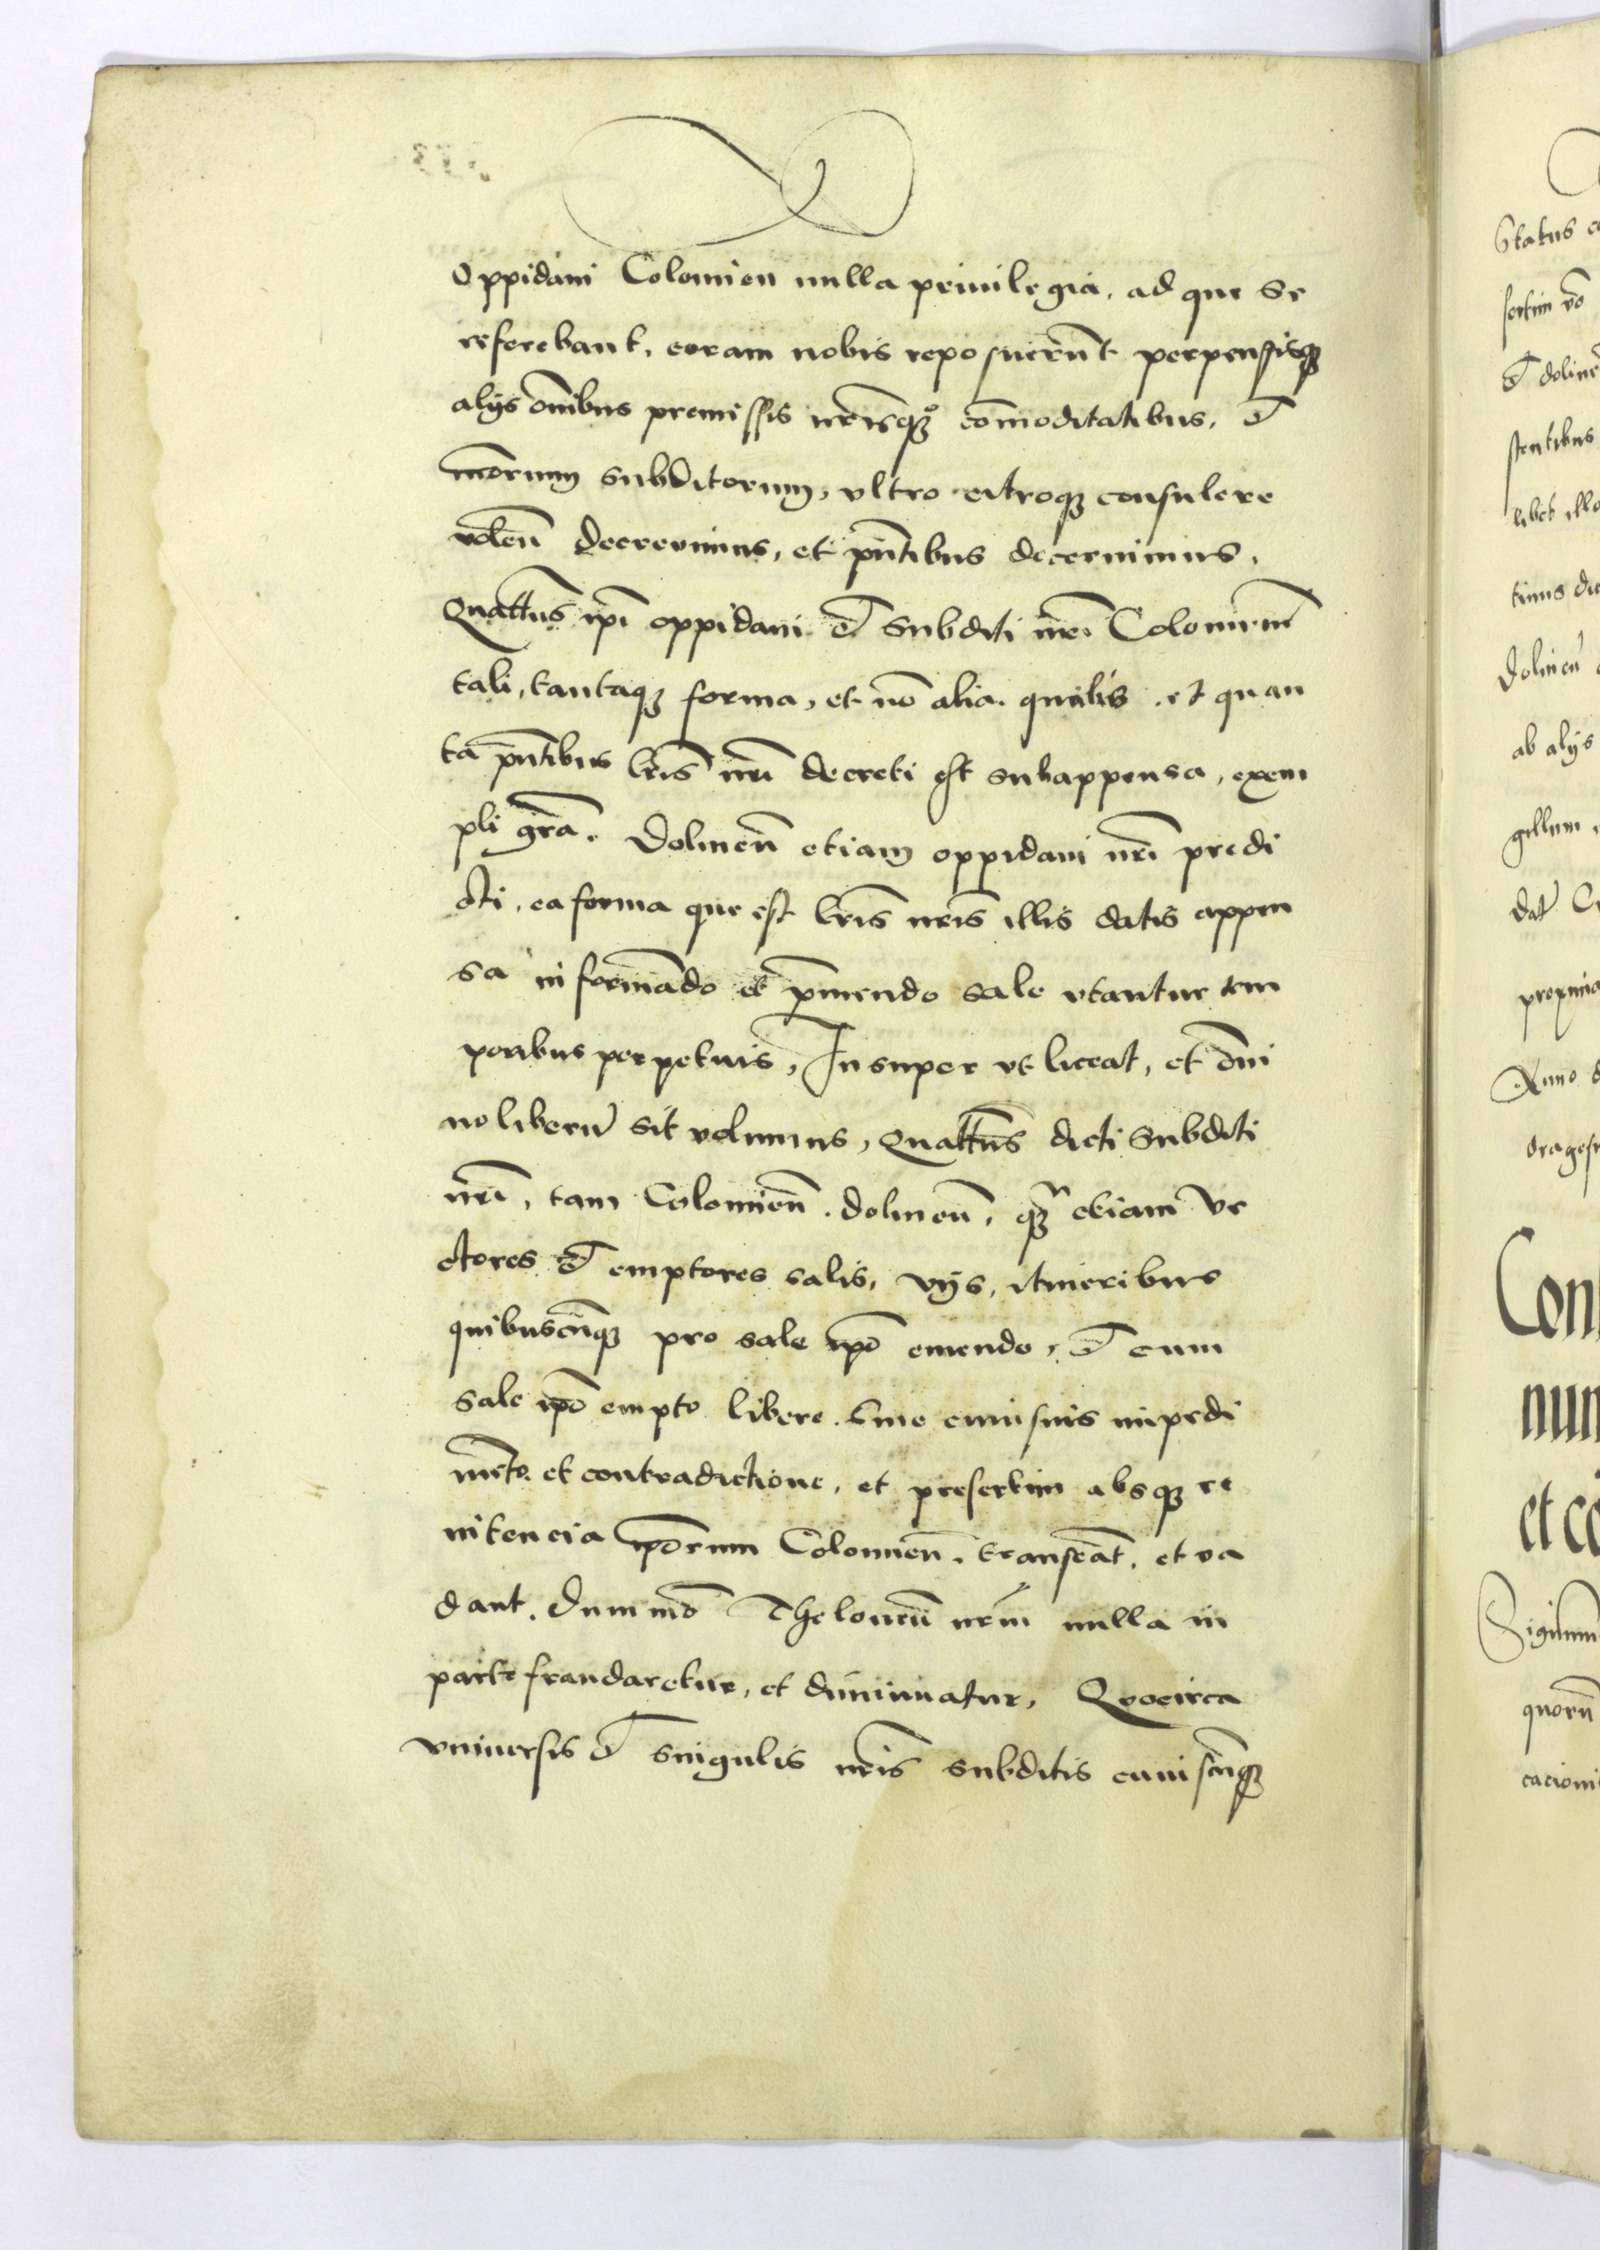 Oppidani Colomien nulla privilegia, ad que Se
referebant, coram nobis reposuerunt perpensisq3
alijs om̄ibus premissis nr̄isq3 com̄oditatibus, et
nr̄orum subditorum, ultro citroq3 consulere
volen̄ decrevimus, et pn̄tibus decernimus,
Quatt̄nus ip̄i oppidani et Subditi nr̄i Colomien̄
tali, tantaq3 forma, et nō alia. qualis et quan
ta pn̄tibus lr̄is nr̄i decreti est subappensa, exem
pli gr̄a. Dolinen̄ etiam oppidani nr̄i predi
cti, ea forma que est lr̄is nr̄is illis datis appen
sa in formādo et p̄mendo sale utantur tem
poribus perpetuis, Insuper ut liceat, et om̄i
no liberū sit volumus, Quatt̄nus dicti Subditi
nr̄i, tam Colomien̄. dolinen̄, q3 etiam Ve
ctores et emptores salis, vijs, itineribus
quibuscūq3 pro sale ip̄o emendo, et cum
sale ip̄o empto libere. Sine cuiusuis impedi
mēto. et contradictione, et presertim absq3 re
nitencia ip̄orum Colomien̄. transeāt, et va
dant. dummō Theloneū nr̄m nulla in
parte fraudaretur, et diminuatur, Quocirca
universis et singulis nr̄is subditis cuiuscūq3
Status
sertim vō
et doline
stentibus
libet illo
tinus
Dolinen̄
ab alijs
gillum
dat̄
propinia
Anno
dragesi
Con
num
et
Sigillum
quorū
cacioni